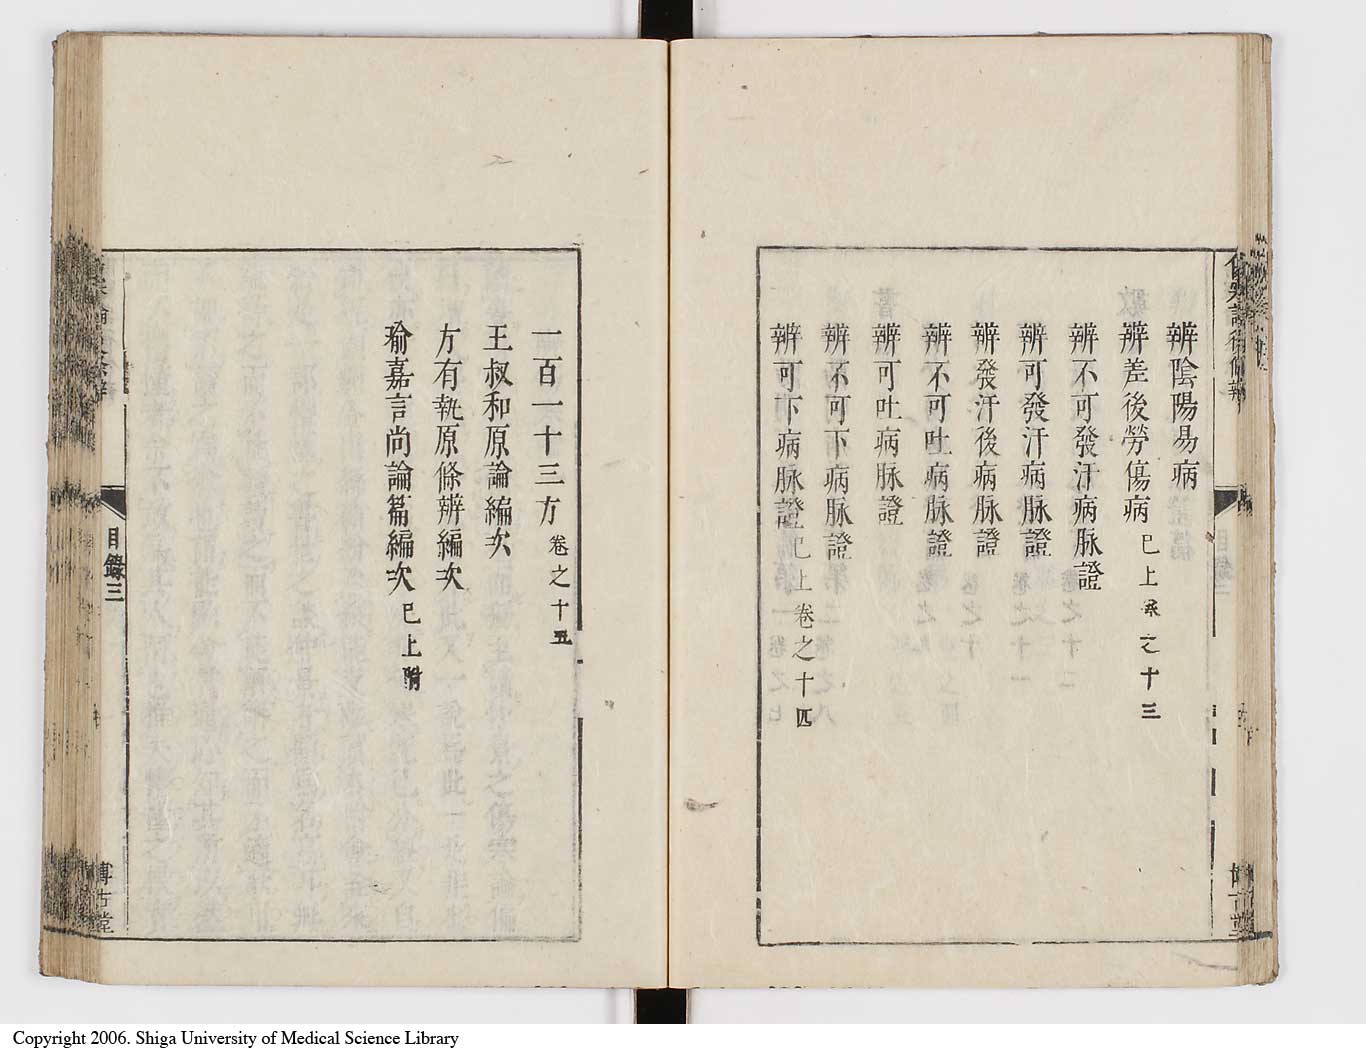 辨陰陽易病
辨差後勞傷病 已上卷之十三
辨不可發汗病脉證
辨可發汗病脉證
辨發汗後病脉證
辨不可吐病脉證
辨可吐病脉證
辨不可下病脉證
辨可下病脉證 已上卷之十四
一百一十三方 卷之十五
王叔和原論編次
方有執原條辨編次
喻嘉言尚論篇編次 已上附
目錄三
博古堂
Copyright 2006. Shiga University of Medical Science Library